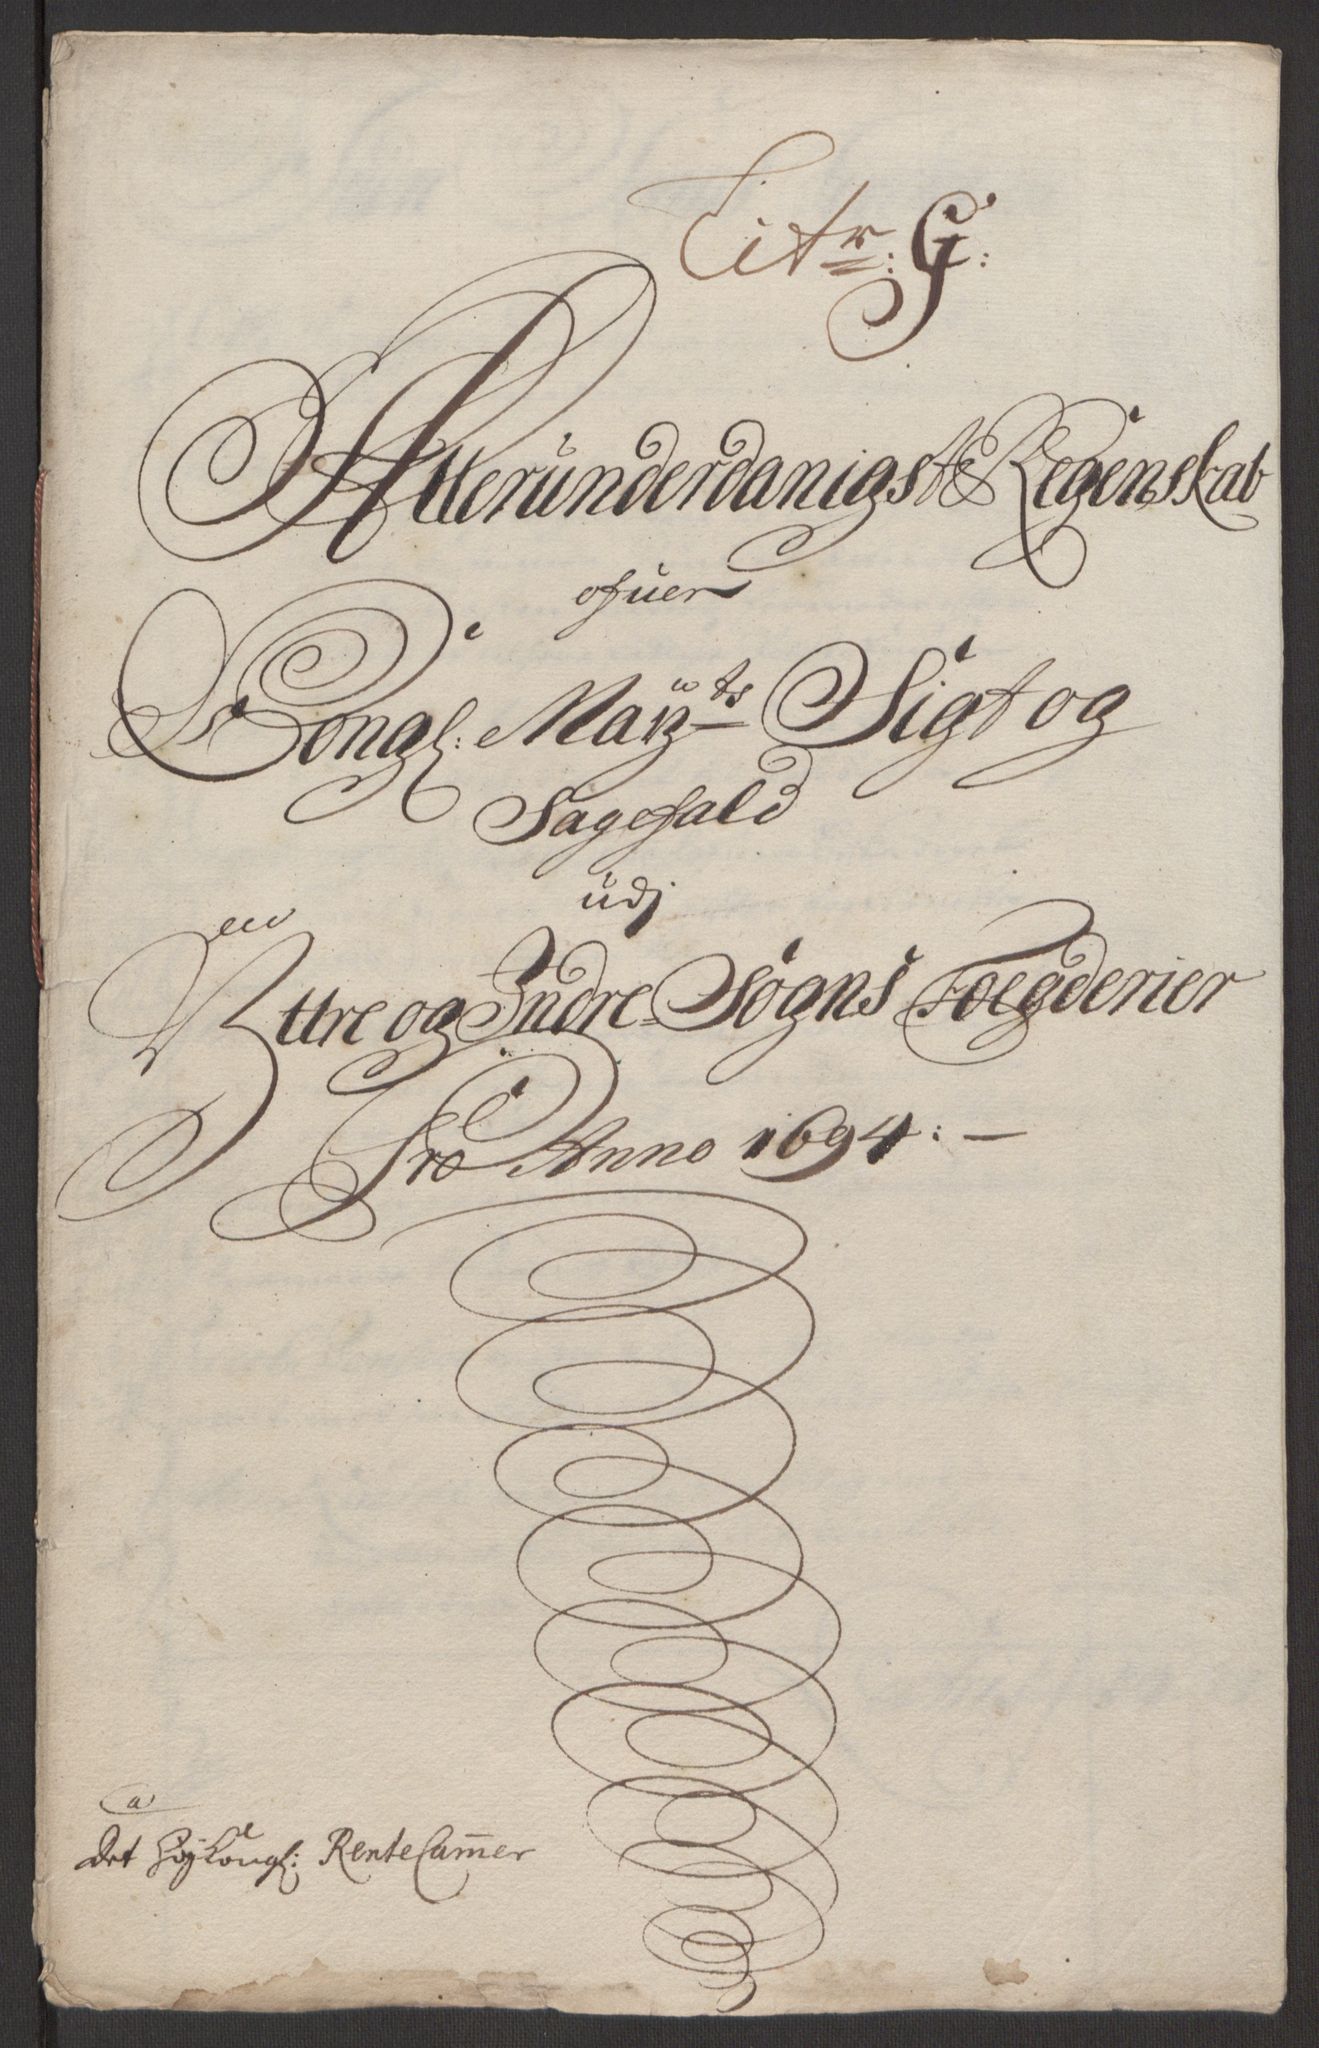 Litr: G:
Allerunderdanigste Regenskab
ofuer
Kongl: Mayts Sigt og
Sagefald
udj
Yttre og Indre Sogns Foegderier
Pro Anno 1694: —
a
Det Høj Kongl: Rente Cammer